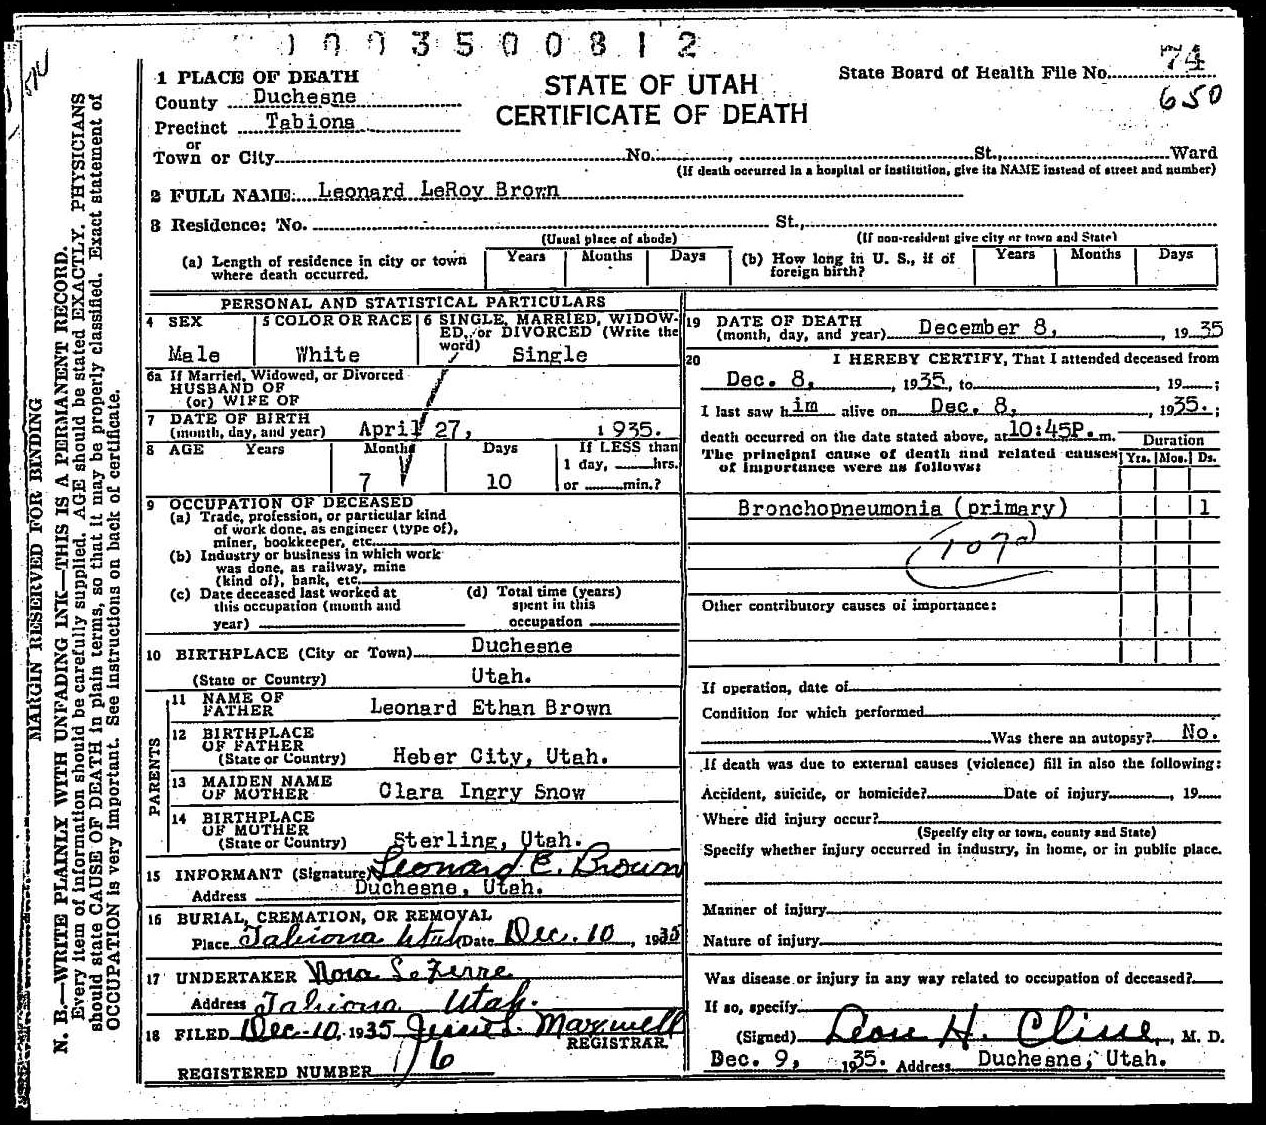 1003500812
1 PLACE OF DEATH
County Duchesne
Precinct Tabiona
or
Town or City No. , St., Ward
(If death occurred in a hospital or institution, give its NAME instead of street and number)
STATE OF UTAH
CERTIFICATE OF DEATH
State Board of Health File No. 74
650
2 FULL NAME: Leonard LeRoy Brown
3 Residence: No. St.,
(Usual place of abode) (If non-resident give city or town and State)
(a) Length of residence in city or town where death occurred. Years Months Days
(b) How long in U. S., if of foreign birth? Years Months Days
PERSONAL AND STATISTICAL PARTICULARS
4 SEX Male
5 COLOR OR RACE White
6 SINGLE, MARRIED, WIDOWED, or DIVORCED (Write the word) Single
6a If Married, Widowed, or Divorced
HUSBAND OF
(or) WIFE OF
7 DATE OF BIRTH
(month, day, and year) April 27, 1935.
8 AGE Years Months Days If LESS than
7 10 1 day, hrs.
or min.?
9 OCCUPATION OF DECEASED
(a) Trade, profession, or particular kind
of work done, as engineer (type of),
miner, bookkeeper, etc.
(b) Industry or business in which work
was done, as railway, mine
(kind of), bank, etc.
(c) Date deceased last worked at
this occupation (month and
year)
(d) Total time (years)
spent in this
occupation
10 BIRTHPLACE (City or Town) Duchesne
(State or Country) Utah.
PARENTS
11 NAME OF FATHER Leonard Ethan Brown
12 BIRTHPLACE OF FATHER
(State or Country) Heber City, Utah.
13 MAIDEN NAME OF MOTHER Clara Ingry Snow
14 BIRTHPLACE OF MOTHER
(State or Country) Sterling, Utah.
15 INFORMANT (Signature) Leonard E. Brown
Address Duchesne, Utah.
16 BURIAL, CREMATION, OR REMOVAL
Place Tabiona Utah Date Dec. 10, 1935
17 UNDERTAKER Nora
Address Tabiona Utah.
18 FILED Dec. 10, 1935 Maxwell
REGISTRAR.
REGISTERED NUMBER 16
19 DATE OF DEATH
(month, day, and year) December 8, 1935
20 I HEREBY CERTIFY, That I attended deceased from
Dec. 8, 1935, to , 19 ;
I last saw him alive on Dec. 8, 1935. ;
death occurred on the date stated above, at 10:45P. m.
The principal cause of death and related causes
of importance were as follows:
Duration
Yrs. Mos. Ds.
Bronchopneumonia (primary) 1
107a
Other contributory causes of importance:
If operation, date of
Condition for which performed
Was there an autopsy? No.
If death was due to external causes (violence) fill in also the following:
Accident, suicide, or homicide? Date of injury , 19
Where did injury occur?
(Specify city or town, county and State)
Specify whether injury occurred in industry, in home, or in public place.
Manner of injury
Nature of injury
Was disease or injury in any way related to occupation of deceased?
If so, specify
(Signed) Leon H. , M. D.
Dec. 9, 1935. Address Duchesne, Utah.
MARGIN RESERVED FOR BINDING
N. B.—WRITE PLAINLY WITH UNFADING INK—THIS IS A PERMANENT RECORD.
Every item of information should be carefully supplied. AGE should be stated EXACTLY. PHYSICIANS
should state CAUSE OF DEATH in plain terms, so that it may be properly classified. Exact statement of
OCCUPATION is very important. See instructions on back of certificate.